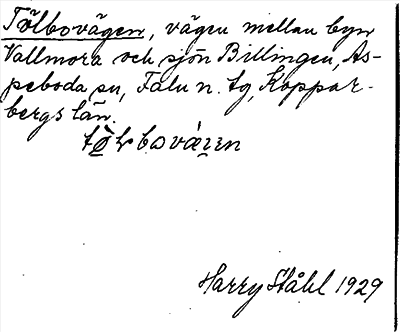 Tölbovägen, vägen mellan byn
Vallmora och sjön Billingen, As-
peboda sn, Falu n. tg, Koppar-
bergs län.
Harry Ståhl 1929